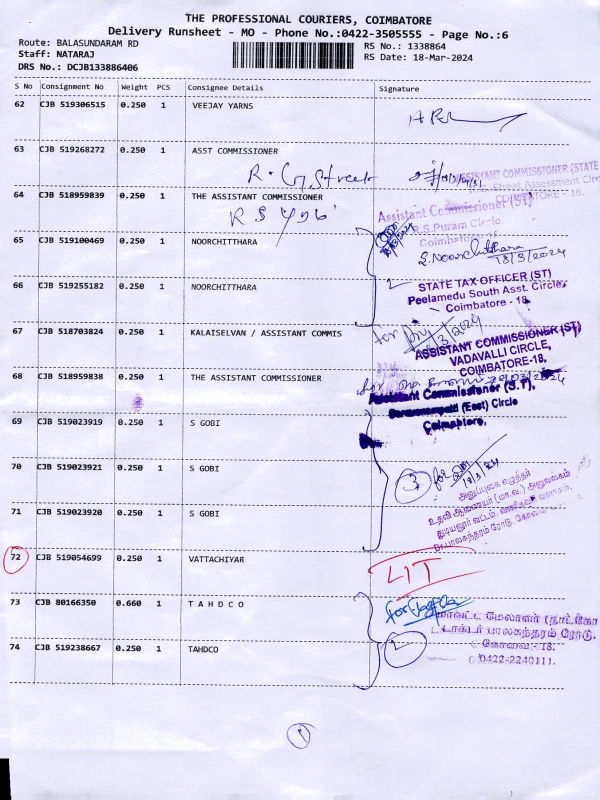 THE PROFESSIONAL COURIERS, COIMBATORE
Delivery Runsheet - MO - Phone No.:0422-3505555 - Page No.:6
Route: BALASUNDARAM RD
RS No.: 1338864
Staff: NATARAJ
RS Date: 18-Mar-2024
DRS No.: DCJB133886406
S No Consignment No Weight PCS Consignee Details Signature
62 CJB 519306515 0.250 1 VEEJAY YARNS
63 CJB 519268272 0.250 1 ASST COMMISSIONER
R. G. Street
ASSISTANT COMMISSIONER (STATE
Street Assessment Circ
COIMBATORE - 18.
64 CJB 518959839 0.250 1 THE ASSISTANT COMMISSIONER
Assistant Commissioner (ST)
R.S.Puram Circle
Coimbatore
65 CJB 519100469 0.250 1 NOORCHITTHARA
S. Noorchitthara
18/3/2024
66 CJB 519255182 0.250 1 NOORCHITTHARA
STATE TAX OFFICER (ST)
Peelamedu South Asst. Circle,
Coimbatore - 18.
67 CJB 518703824 0.250 1 KALAISELVAN / ASSISTANT COMMIS
for
ASSISTANT COMMISSIONER (ST)
VADAVALLI CIRCLE,
COIMBATORE-18.
68 CJB 518959838 0.250 1 THE ASSISTANT COMMISSIONER
Assistant Commissioner (S.T).
(East) Circle
Coimbatore.
69 CJB 519023919 0.250 1 S GOBI
70 CJB 519023921 0.250 1 S GOBI
3 for
18/3/24
71 CJB 519023920 0.250 1 S GOBI
அனுப்புகை எழுத்தர்
உதவி ஆணையர் (மா.வ.) அலுவலகம்
72 CJB 519054699 0.250 1 VATTACHIYAR
LIT
73 CJB 80166350 0.660 1 T A H D C O
for
மாவட்ட மேலாளர் (தாட்கோ
டாக்டர் பாலசுந்தரம் ரோடு.
கோவை - 18.
0422-2240111.
74 CJB 519238667 0.250 1 TAHDCO
2